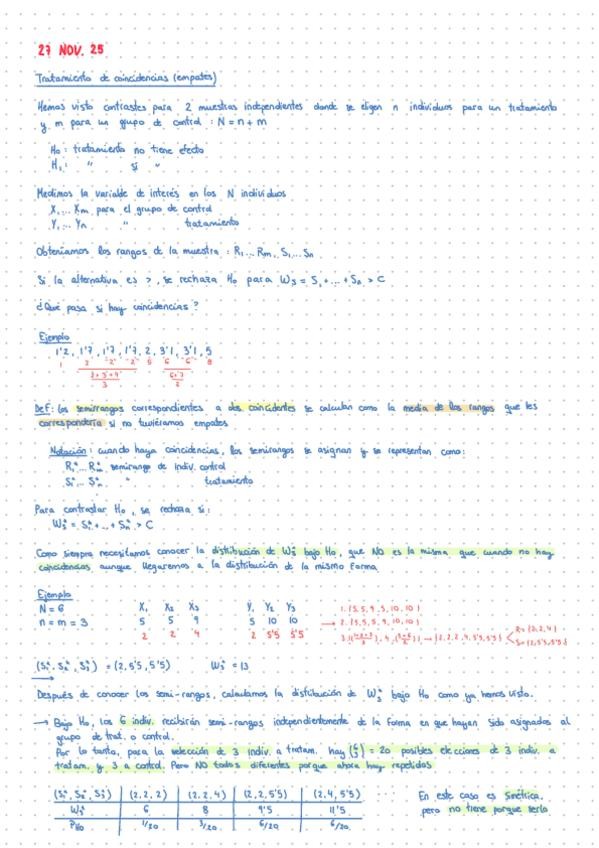 27 NOV. 25
Tratamiento de coincidencias (empates)
Hemos visto contrastes para 2 muestras independientes donde se eligen n individuos para un tratamiento
y m para un grupo de control : N = n + m
H₀ : tratamiento no tiene efecto
H₁ : " si "
Medimos la variable de interés en los N individuos
X₁ ... Xm para el grupo de control
Y₁ ... Yn " tratamiento
Obteníamos los rangos de la muestra : R₁ ... Rm, S₁ ... Sn
Si la alternativa es >, se rechaza H₀ para Ws = S₁ + ... + Sn > C
¿Qué pasa si hay coincidencias ?
Ejemplo
1'2, 1'7, 1'7, 1'7, 2, 3'1, 3'1, 5
2+3+4
3
6+7
2
Def: Los semirrangos correspondientes a dos coincidentes se calculan como la media de los rangos que les
correspondería si no tuviéramos empates
Notación : cuando haya coincidencias, los semirangos se asignan y se representan como:
R₁* ... Rm* semirango de indiv. control
S₁* ... Sn* " tratamiento
Para contrastar H₀, se rechaza si :
Ws* = S₁* + ... + Sn* > C
Como siempre necesitamos conocer la distribución de Ws* bajo H₀, que NO es la misma que cuando no hay
coincidencias aunque llegaremos a la distribución de la misma forma
Ejemplo
N = 6 X₁ X₂ X₃ Y₁ Y₂ Y₃ 1. {5, 5, 9, 5, 10, 10}
n = m = 3 5 5 9 5 10 10 → 2. {5, 5, 5, 9, 10, 10}
2 2 4 2 5'5 5'5 → {2, 2, 2, 4, 5'5, 5'5} R= {2, 2, 4} S= {2, 5'5, 5'5}
(S₁*, S₂*, S₃*) = (2, 5'5, 5'5) Ws* = 13
Después de conocer los semi-rangos, calculamos la distribución de Ws* bajo H₀ como ya hemos visto.
→ Bajo H₀, los 6 indiv. recibirán semi-rangos independientemente de la forma en que hayan sido asignados al
grupo de trat. o control.
Por lo tanto, para la selección de 3 indiv. a tratam. hay (6 3) = 20 posibles elecciones de 3 indiv. a
tratam. y 3 a control. Pero NO todos diferentes porque ahora hay repetidos
(S₁*, S₂*, S₃*) (2, 2, 2) (2, 2, 4) (2, 2, 5'5) (2, 4, 5'5) ... En este caso es simétrica,
Ws* 6 8 9'5 11'5 pero no tiene porque serlo
PH₀ 1/20 3/20 6/20 6/20